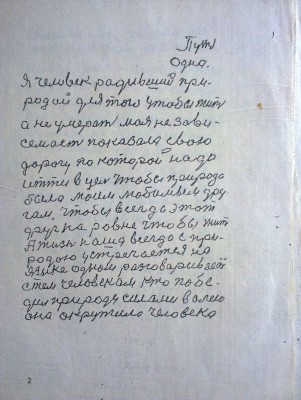 Пут
Одна.
Я человек радивший при-
родай для того чтобы жит
а не умерат моя незави-
семаст показала свою
дорогу по которой надо
итти в цел чтобы природа
была моим любимым дру
гам, чтобы всегда этот
друг на ровне чтобы жит
А жизн наша всегда с при-
родою устречается на
язике одном разговаривает
с тем человекам, кто побе-
дил природу силами волею
она окружила человека
2